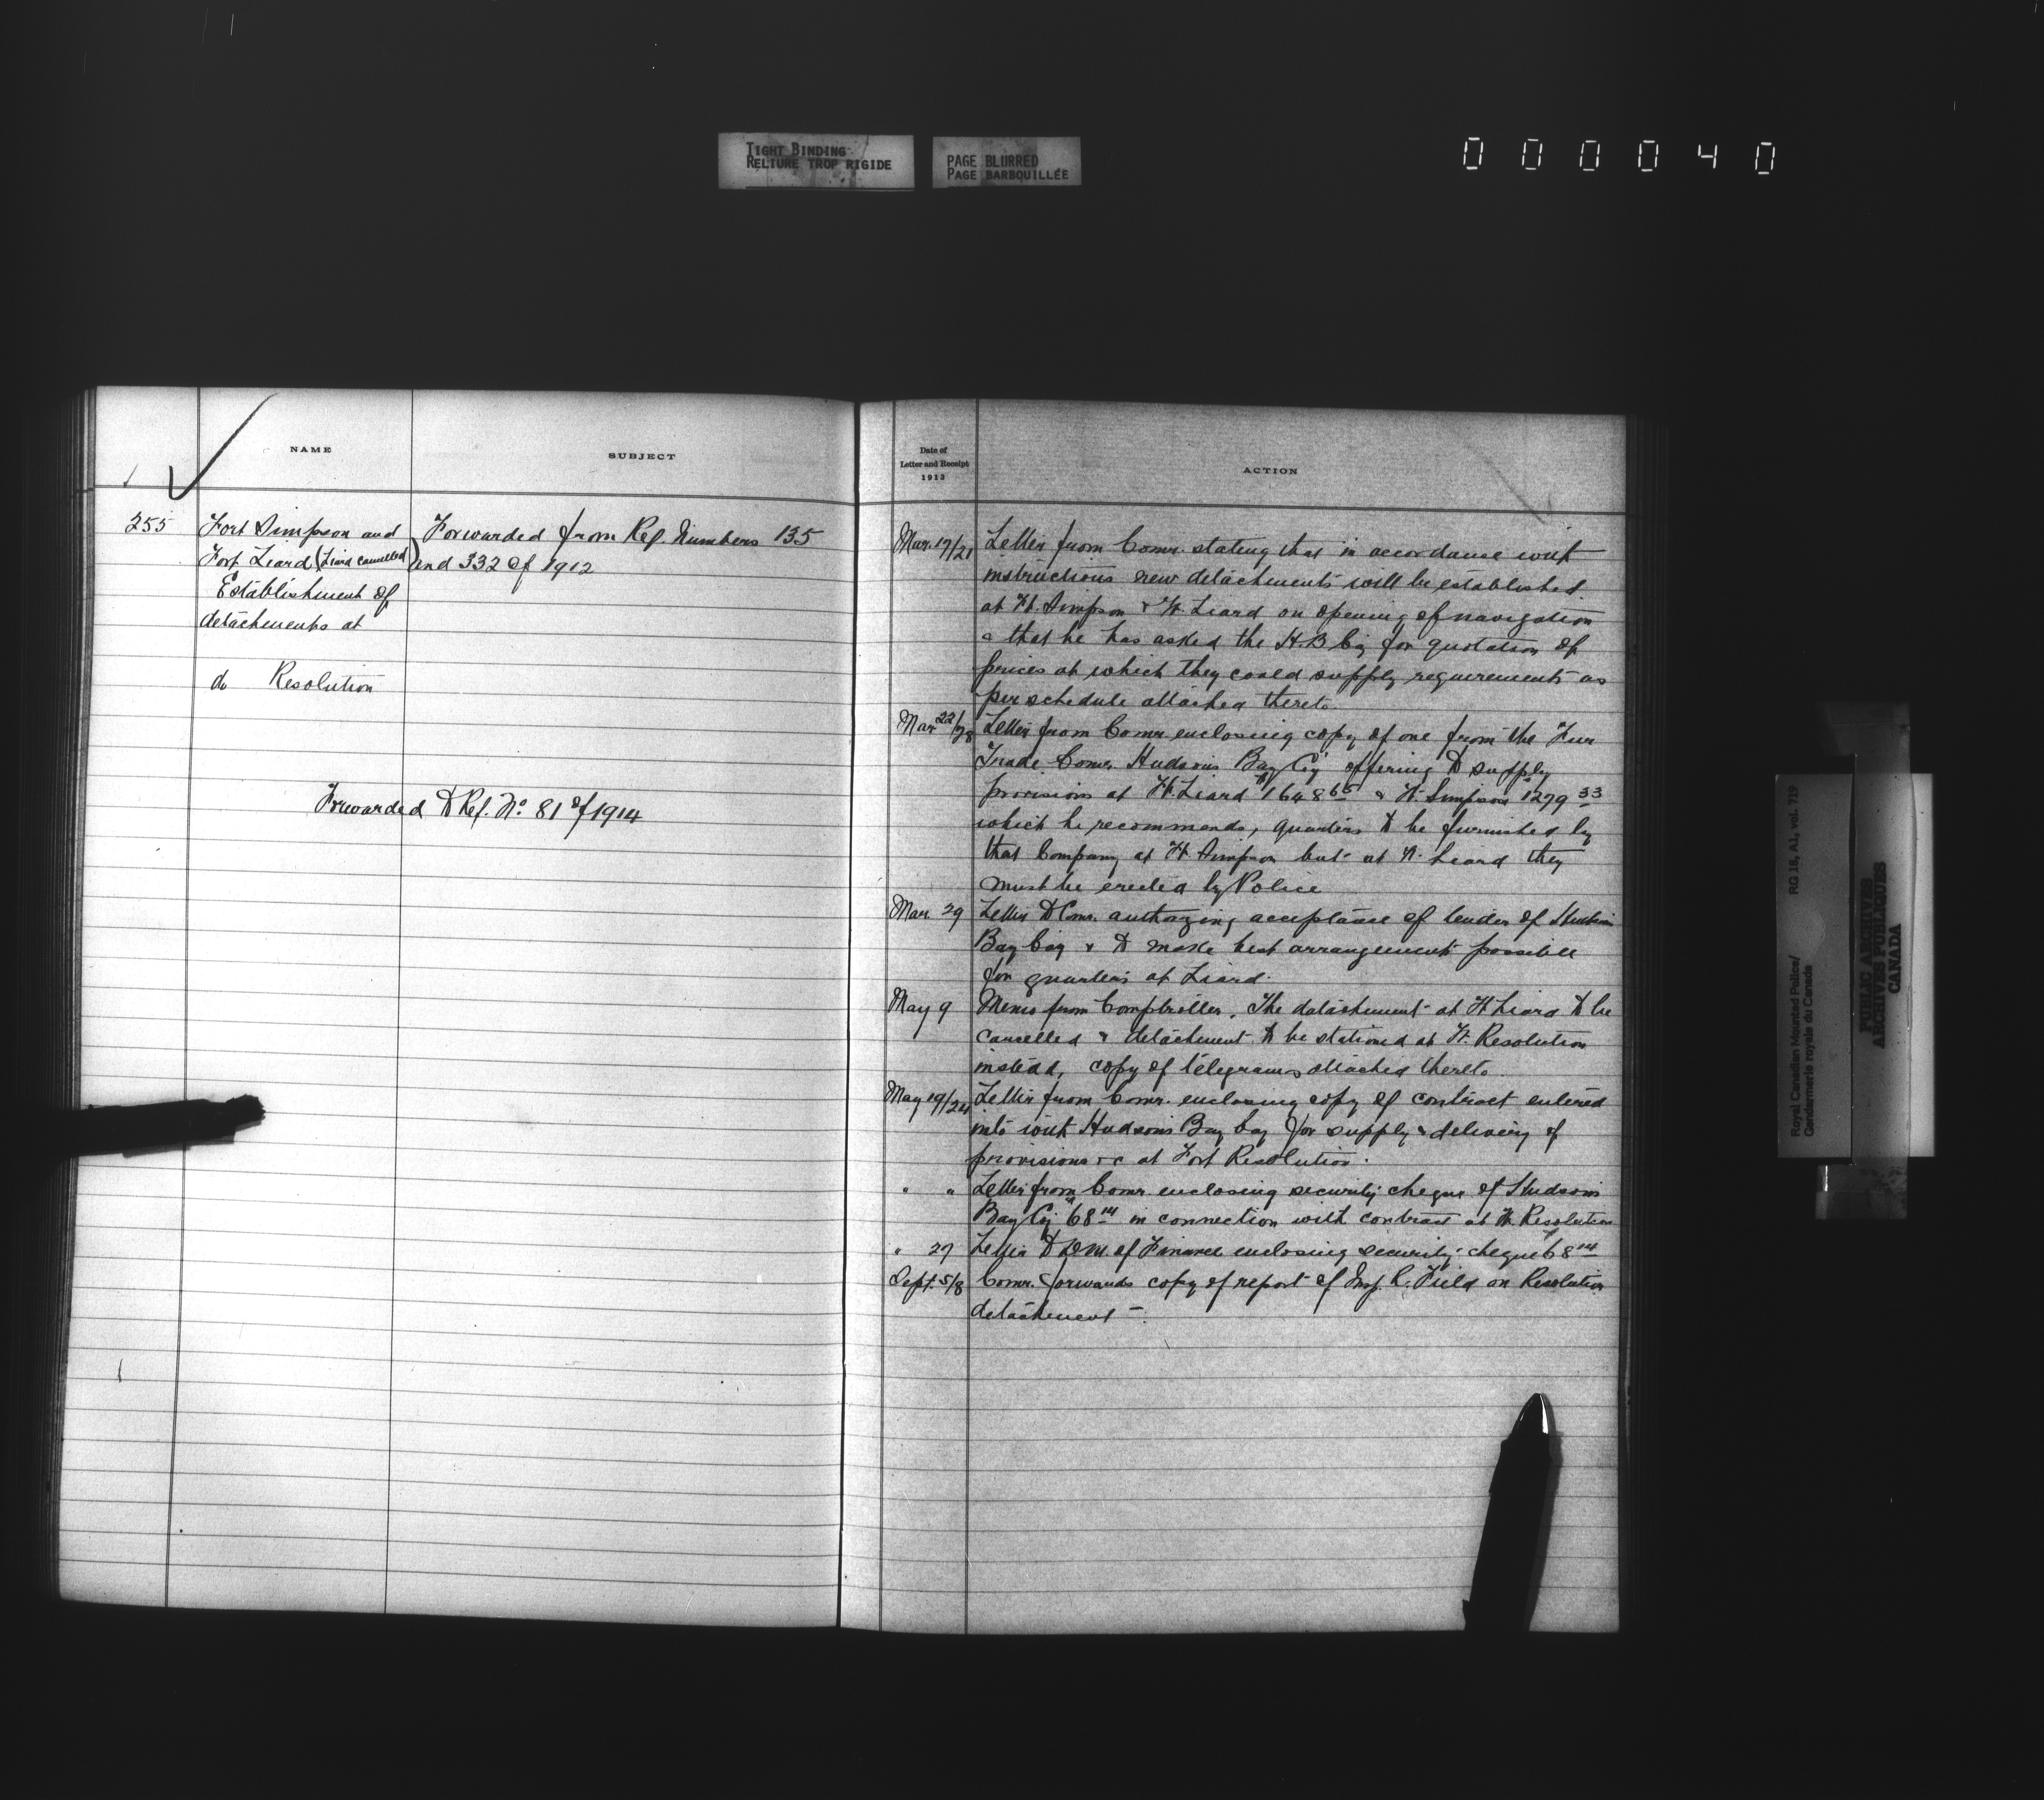 TIGHT BINDING
RELIURE TROP RIGIDE
PAGE BLURRED
PAGE BARBOUILLÉE
000040
NAME
SUBJECT
255
Fort Simpson and
Fort Liard (Liard cancelled)
Establishment of
detachments at
do Resolution
Forwarded from Ref. Numbers 135
and 332 of 1912
Forwarded to Ref. No. 81 of 1914
Date of
Letter and Receipt
1913
ACTION
Mar. 17/21 Letter from Comr. stating that in accordance with
instructions new detachments will be established
at Ft. Simpson & Ft. Liard on opening of navigation
& that he has asked the H.B. Coy for quotation of
prices at which they could supply requirements as
per schedule attached thereto.
Mar 22/28 Letter from Comr. enclosing copy of one from the Fur
Trade Comr. Hudsons Bay Coy offering to supply
provisions at Ft. Liard $1648 65 & Ft. Simpson 1279 33
which he recommends, quarters to be furnished by
that Company at Ft Simpson but at Ft. Liard they
must be erected by Police
Mar. 29 Letter to Comr. authorizing acceptance of tender of Hudsons
Bay Coy & to make best arrangements possible
for quarters at Liard.
May 9 Memo from Comptroller. The detachment at Ft Liard to be
cancelled & detachment to be stationed at Ft. Resolution
instead, copy of telegrams attached thereto.
May 19/24 Letter from Comr. enclosing copy of contract entered
into with Hudson's Bay Coy for supply & delivery of
provisions &c at Fort Resolution.
" " Letter from Comr. enclosing security cheque of Hudson's
Bay Coy $68 14 in connection with contract at Ft. Resolution
" 27 Letter to D.M. of Finance enclosing security cheque $68 14
Sept. 5/8 Comr. forwards copy of report of Insp. R. Field on Resolution
detachment –
Royal Canadian Mounted Police/
Gendarmerie royale du Canada
RG 18, A1, vol. 719
PUBLIC ARCHIVES
ARCHIVES PUBLIQUES
CANADA